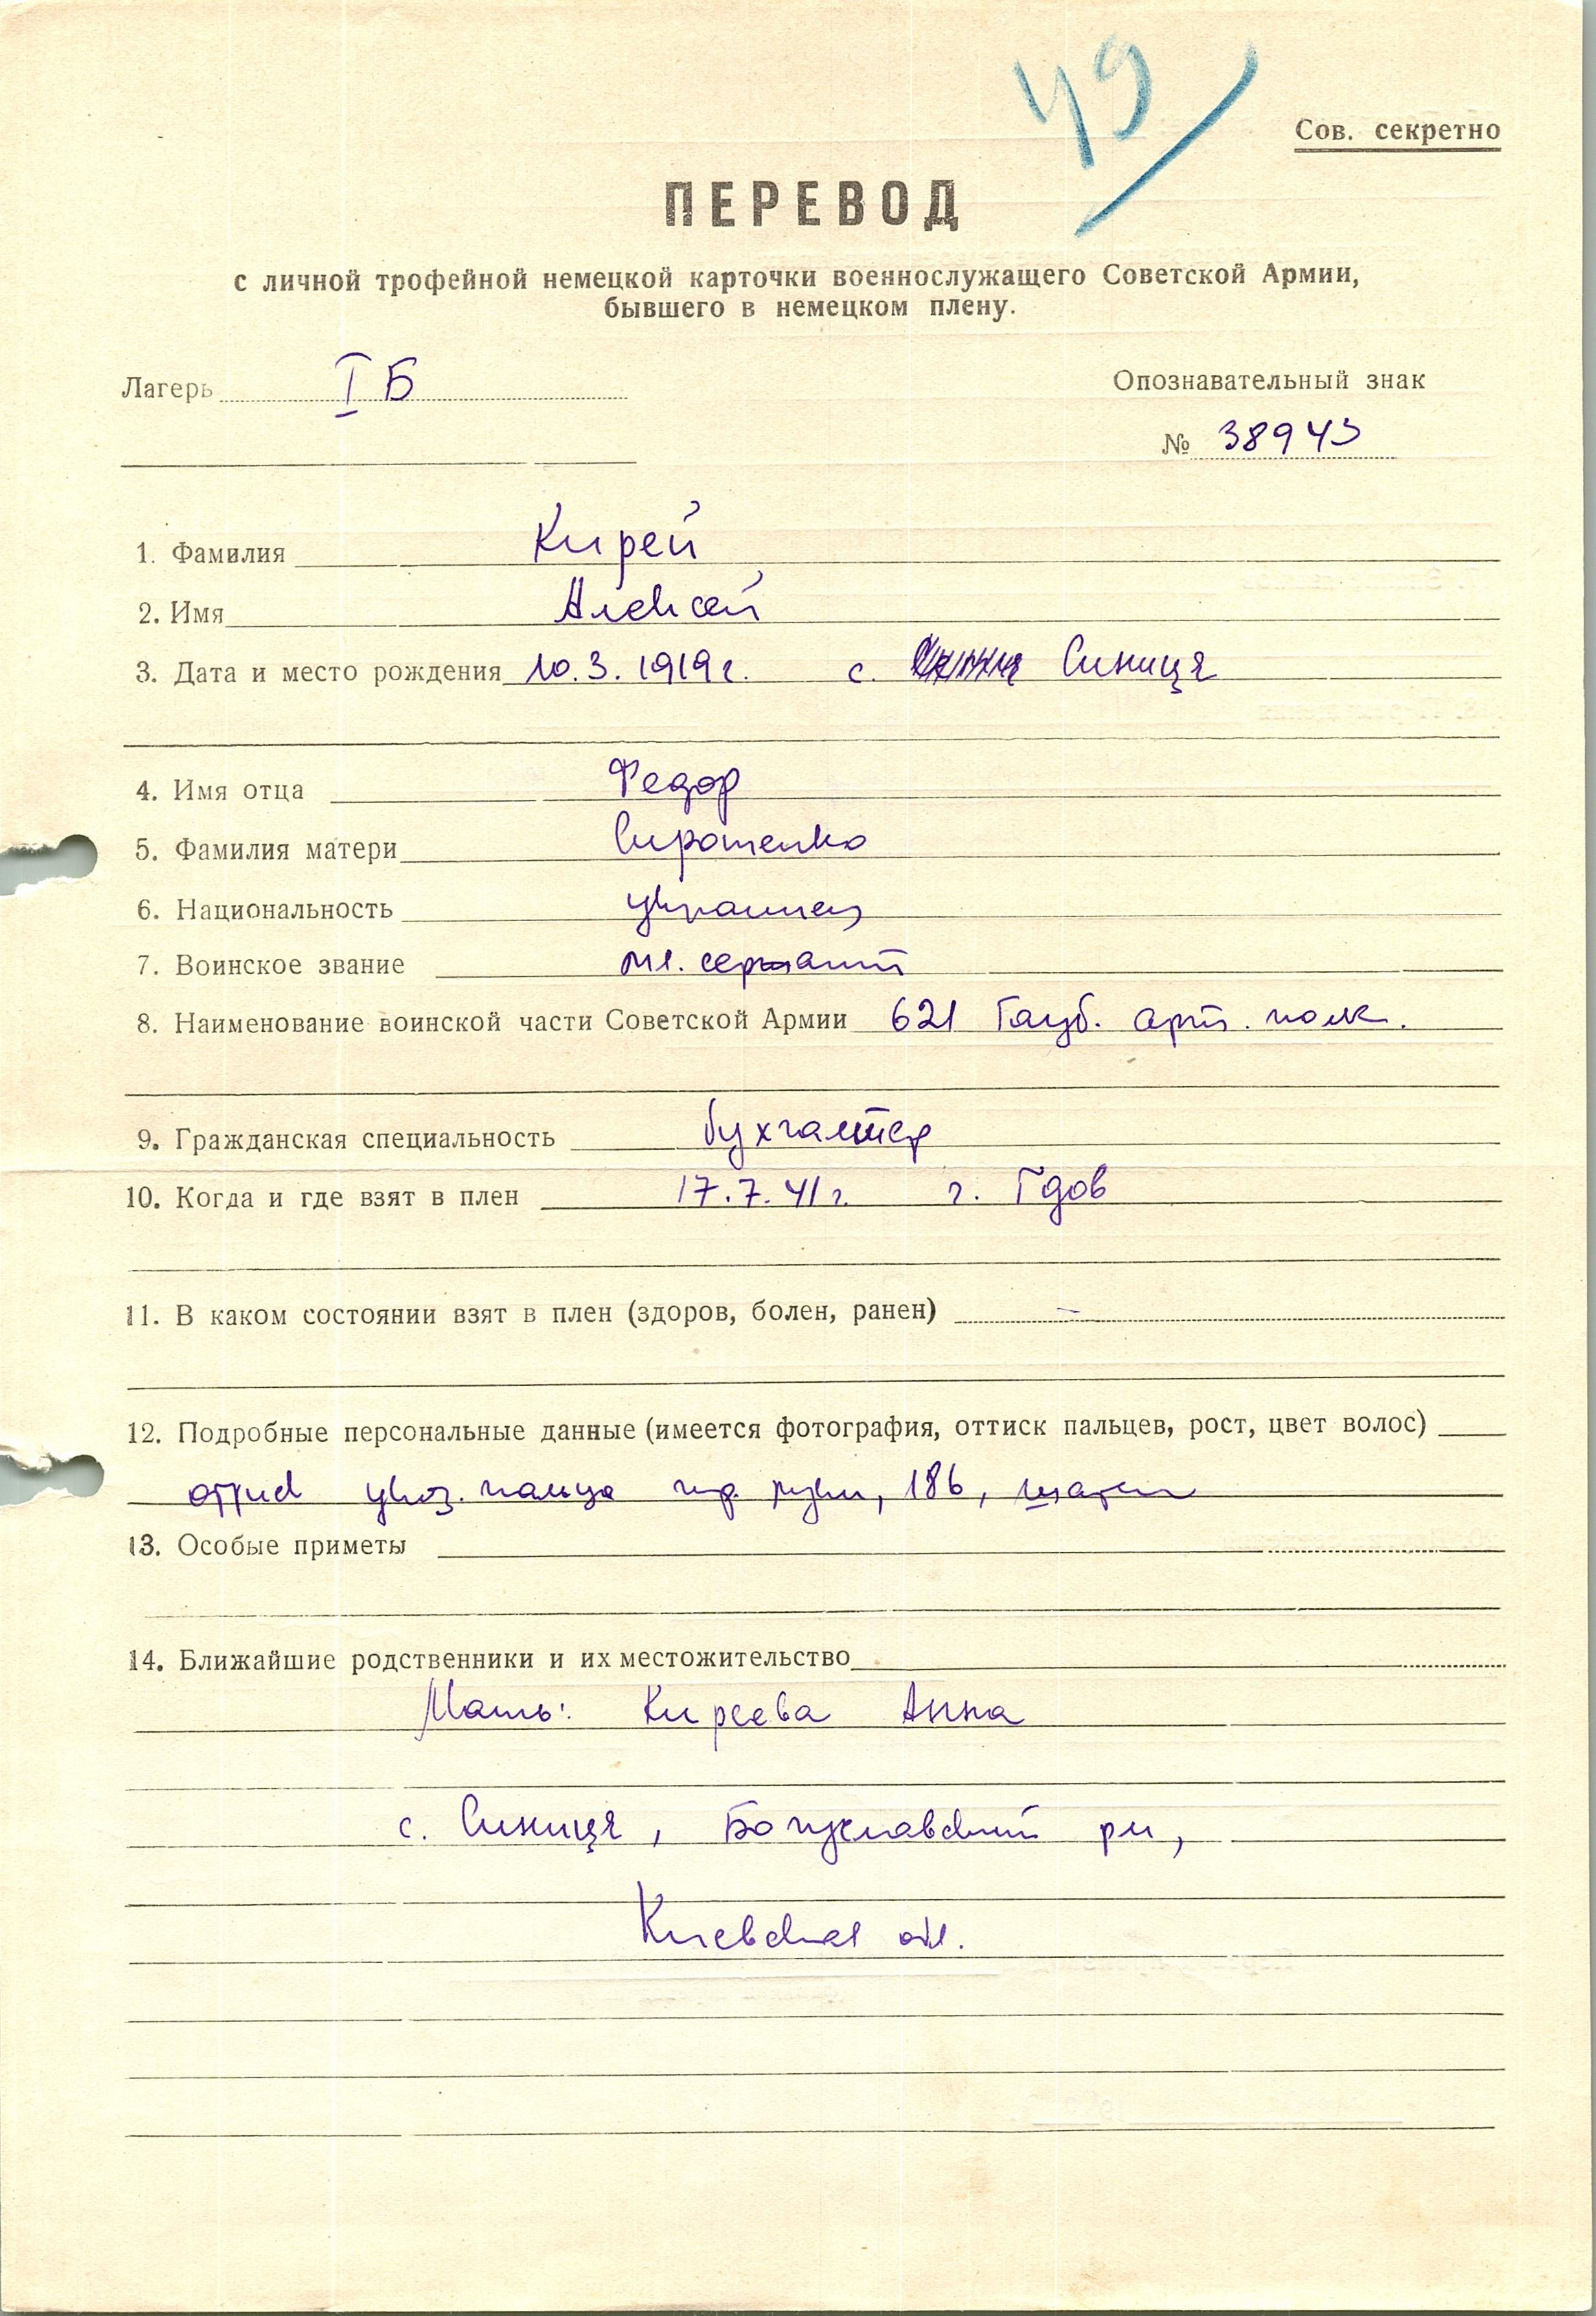 49
Сов. секретно
ПЕРЕВОД
с личной трофейной немецкой карточки военнослужащего Советской Армии,
бывшего в немецком плену.
Лагерь I Б
Опознавательный знак
№ 38943
1. Фамилия Кирей
2. Имя Алексей
3. Дата и место рождения 10.3.1919г. с. Синиця
4. Имя отца Федор
5. Фамилия матери Сиротенко
6. Национальность украинец
7. Воинское звание мл. сержант
8. Наименование воинской части Советской Армии 621 Гауб. арт. полк.
9. Гражданская специальность бухгалтер
10. Когда и где взят в плен 17.7.41г. г. Гдов
11. В каком состоянии взят в плен (здоров, болен, ранен) –
12. Подробные персональные данные (имеется фотография, оттиск пальцев, рост, цвет волос)
указ. пальца пр. руки, 186, шатен
13. Особые приметы
14. Ближайшие родственники и их местожительство
Мать: Киреева Анна
с. Синиця, Богуславский рн,
Киевская обл.